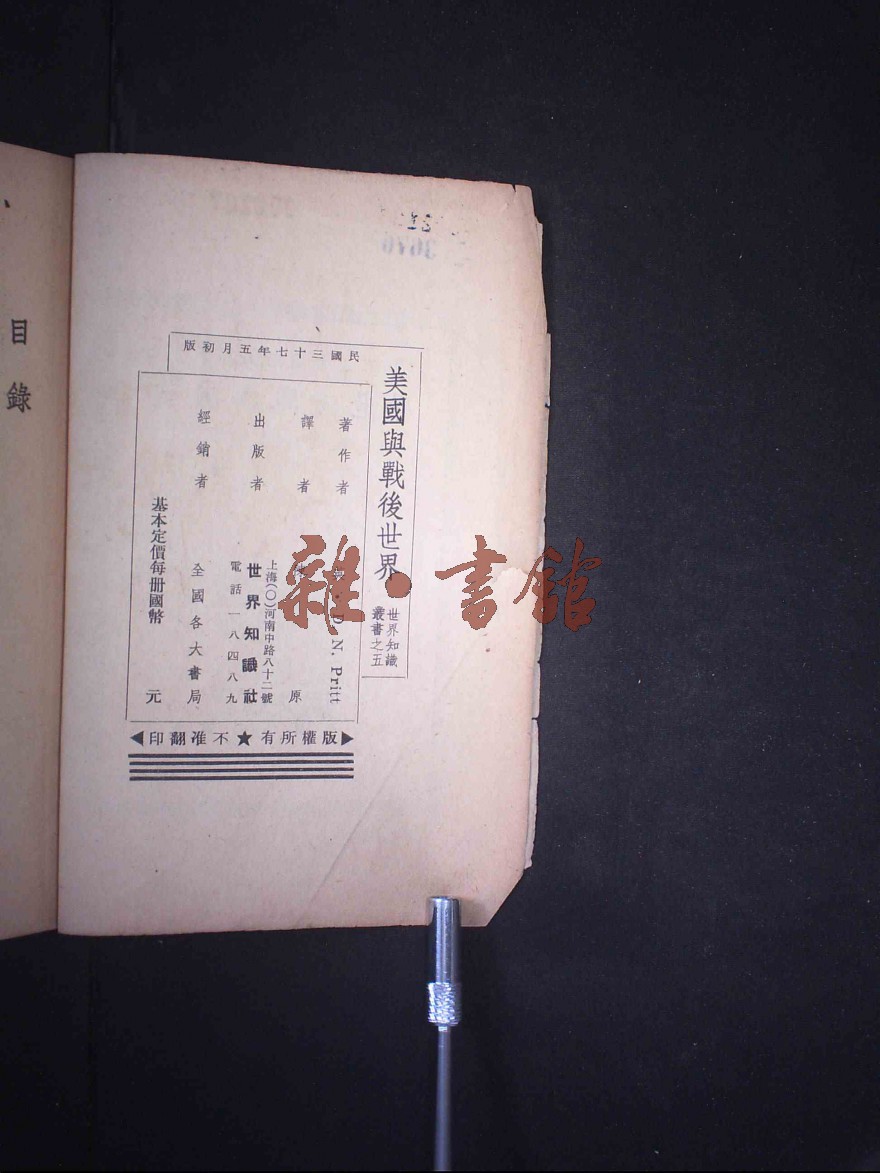 民國三十七年五月初版
美國與戰後世界
世界知識
叢書之五
著作者 D. N. Pritt
譯者 原
出版者 世界知識社
上海(〇)河南中路八十二號
電話 一八四八九
經銷者 全國各大書局
基本定價每册國幣 元
版權所有★不准翻印
目錄
3676
雜·書館